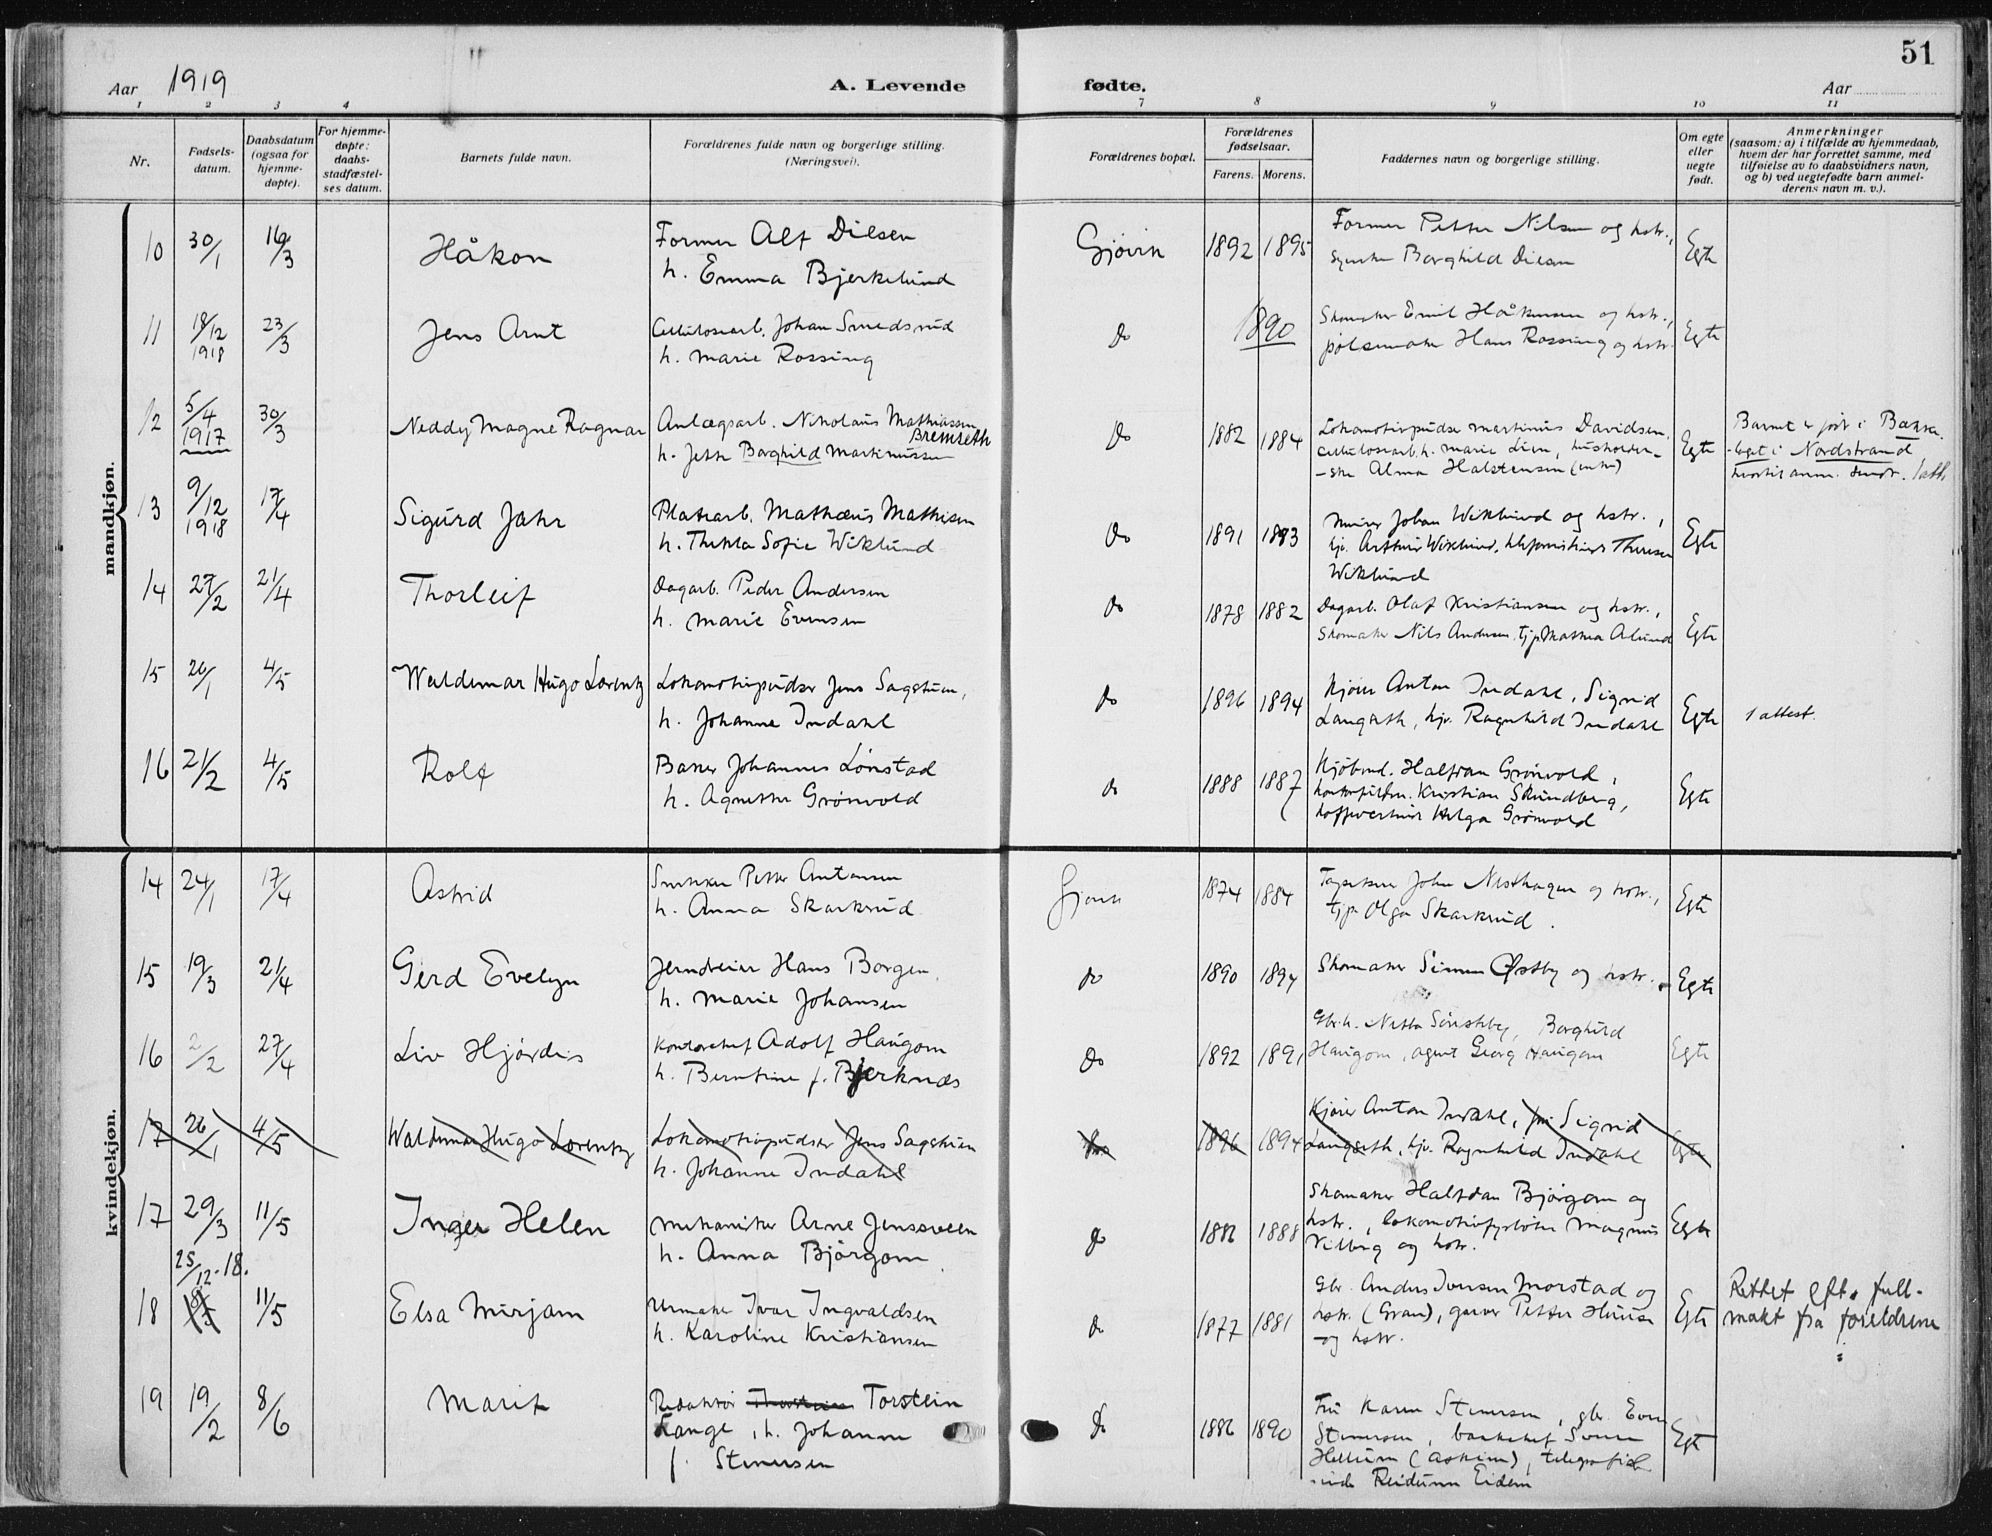 51
Aar 1919
A. Levende fødte.
Aar
1 2 3 4 7 8 9 10 11
Nr.
Fødsels-
datum.
Daabsdatum
(ogsaa for
hjemme-
døpte).
For hjemme-
døpte:
daabs-
stadfæstel-
ses datum.
Barnets fulde navn.
Forældrenes fulde navn og borgerlige stilling.
(Næringsvei).
Forældrenes bopæl.
Forældrenes
fødselsaar.
Farens. Morens.
Faddernes navn og borgerlige stilling.
Om egte
eller
uegte
født.
Anmerkninger
(saasom: a) i tilfælde av hjemmedaab,
hvem der har forrettet samme, med
tilføielse av to daabsvidners navn,
og b) ved uegtefødte barn anmel-
derens navn m. v.).
mandkjøn.
10 30/1 16/3 Håkon Former Alf Dilsen Gjøvik 1892 1895 Former Petter Nilsen og hstr., Egte
h. Emma Bjerkelund Borghild Dilsen
11 18/12 23/3 Jens Arnt Cellulosearb. Johan Smedsrud Do 1890 Skomaker Emil Håkensen og hstr., Egte
1918 h. Marie Rossing pølsemaker Hans Rossing og hstr.
12 5/4 30/3 Neddy Magne Ragnar Anlægsarb. Nikolaus Mathiassen Do 1882 1884 Lokomotivpudser Martinius Davidsen, Egte Barnet er født i
1917 Bremseth cellulosearb. h. Marie Lien, husholder- Nordstrand
h. Borghild Martinussen -ske Alma Halstensen 1 att.
13 9/12 17/4 Sigurd Jahr Platearb. Mathæus Mathisen Do 1891 1893 Johan Wiklund og hstr., Egte
1918 h. Thekla Sofie Wiklund Arthur Wiklund,
Wiklund
14 27/2 21/4 Thorleif Dagarb. Peder Andersen do 1878 1882 Dagarb. Olaf Kristiansen og hstr., Egte
h. Marie Evensen Skomaker Nils Andersen, tjp.
15 26/1 4/5 Waldemar Hugo Lorentz Lokomotivpudser Jens Sagstuen, do 1896 1894 Kjører Anton Indahl, Sigrid Egte 1 attest.
h. Johanne Indahl Langseth, hjv. Ragnhild Indahl
16 21/2 4/5 Rolf Baker Johannes Lønstad do 1888 1887 Kjøbmd. Halfdan Grønvold, Egte
h. Agnethe Grønvold Kristian Skundberg,
Helga Grønvold
kvindekjøn.
14 24/1 17/4 Astrid Snekker Petter Antonsen Gjøvik 1874 1884 Tapetserer John Nesthagen og hstr., Egte
h. Anna Skarkrud tjp. Olga Skarkrud.
15 19/3 21/4 Gerd Evelyn Jerndreier Hans Borgen do 1890 1894 Skomaker Simen Østby og hstr. Egte
h. Marie Johansen
16 2/2 27/4 Liv Hjørdis Kontorchef Adolf Haugom do 1892 1891 Gbr.h. Netta Sønsteby, Borghild Egte
h. Berntine f. Bjerknes Haugom, agent Georg Haugom
17 26/1 4/5 Waldemar Hugo Lorentz Lokomotivpudser Jens Sagstuen do 1896 1894 Kjører Anton Indahl, Sigrid Egte
h. Johanne Indahl Langseth, hjv. Ragnhild Indahl
17 29/3 11/5 Inger Helen Mekaniker Arne Jenssveen do 1886 1888 Skomaker Halfdan Bjørgom og Egte
h. Anna Bjørgom hstr., lokomotivfyrbøter Magnus
Nilberg og hstr.
25/12-18.
18 11/5 Elsa Mirjam Urmaker Ivar Ingvaldsen do 1877 1881 Gbr. Anders Iversen Morstad og Egte Rettet eft. full-
h. Karoline Kristiansen hstr. (Gran), garver Petter og hstr. makt fra foreldrene
19 19/2 8/6 Marit Redaktør Torstein do 1886 1890 Fru Karen Stenersen, gbr. Even Egte
Lange, h. Johanne Stenersen, bankchef
f. Stenersen Hellum (Askim),
Reidunn Eidem